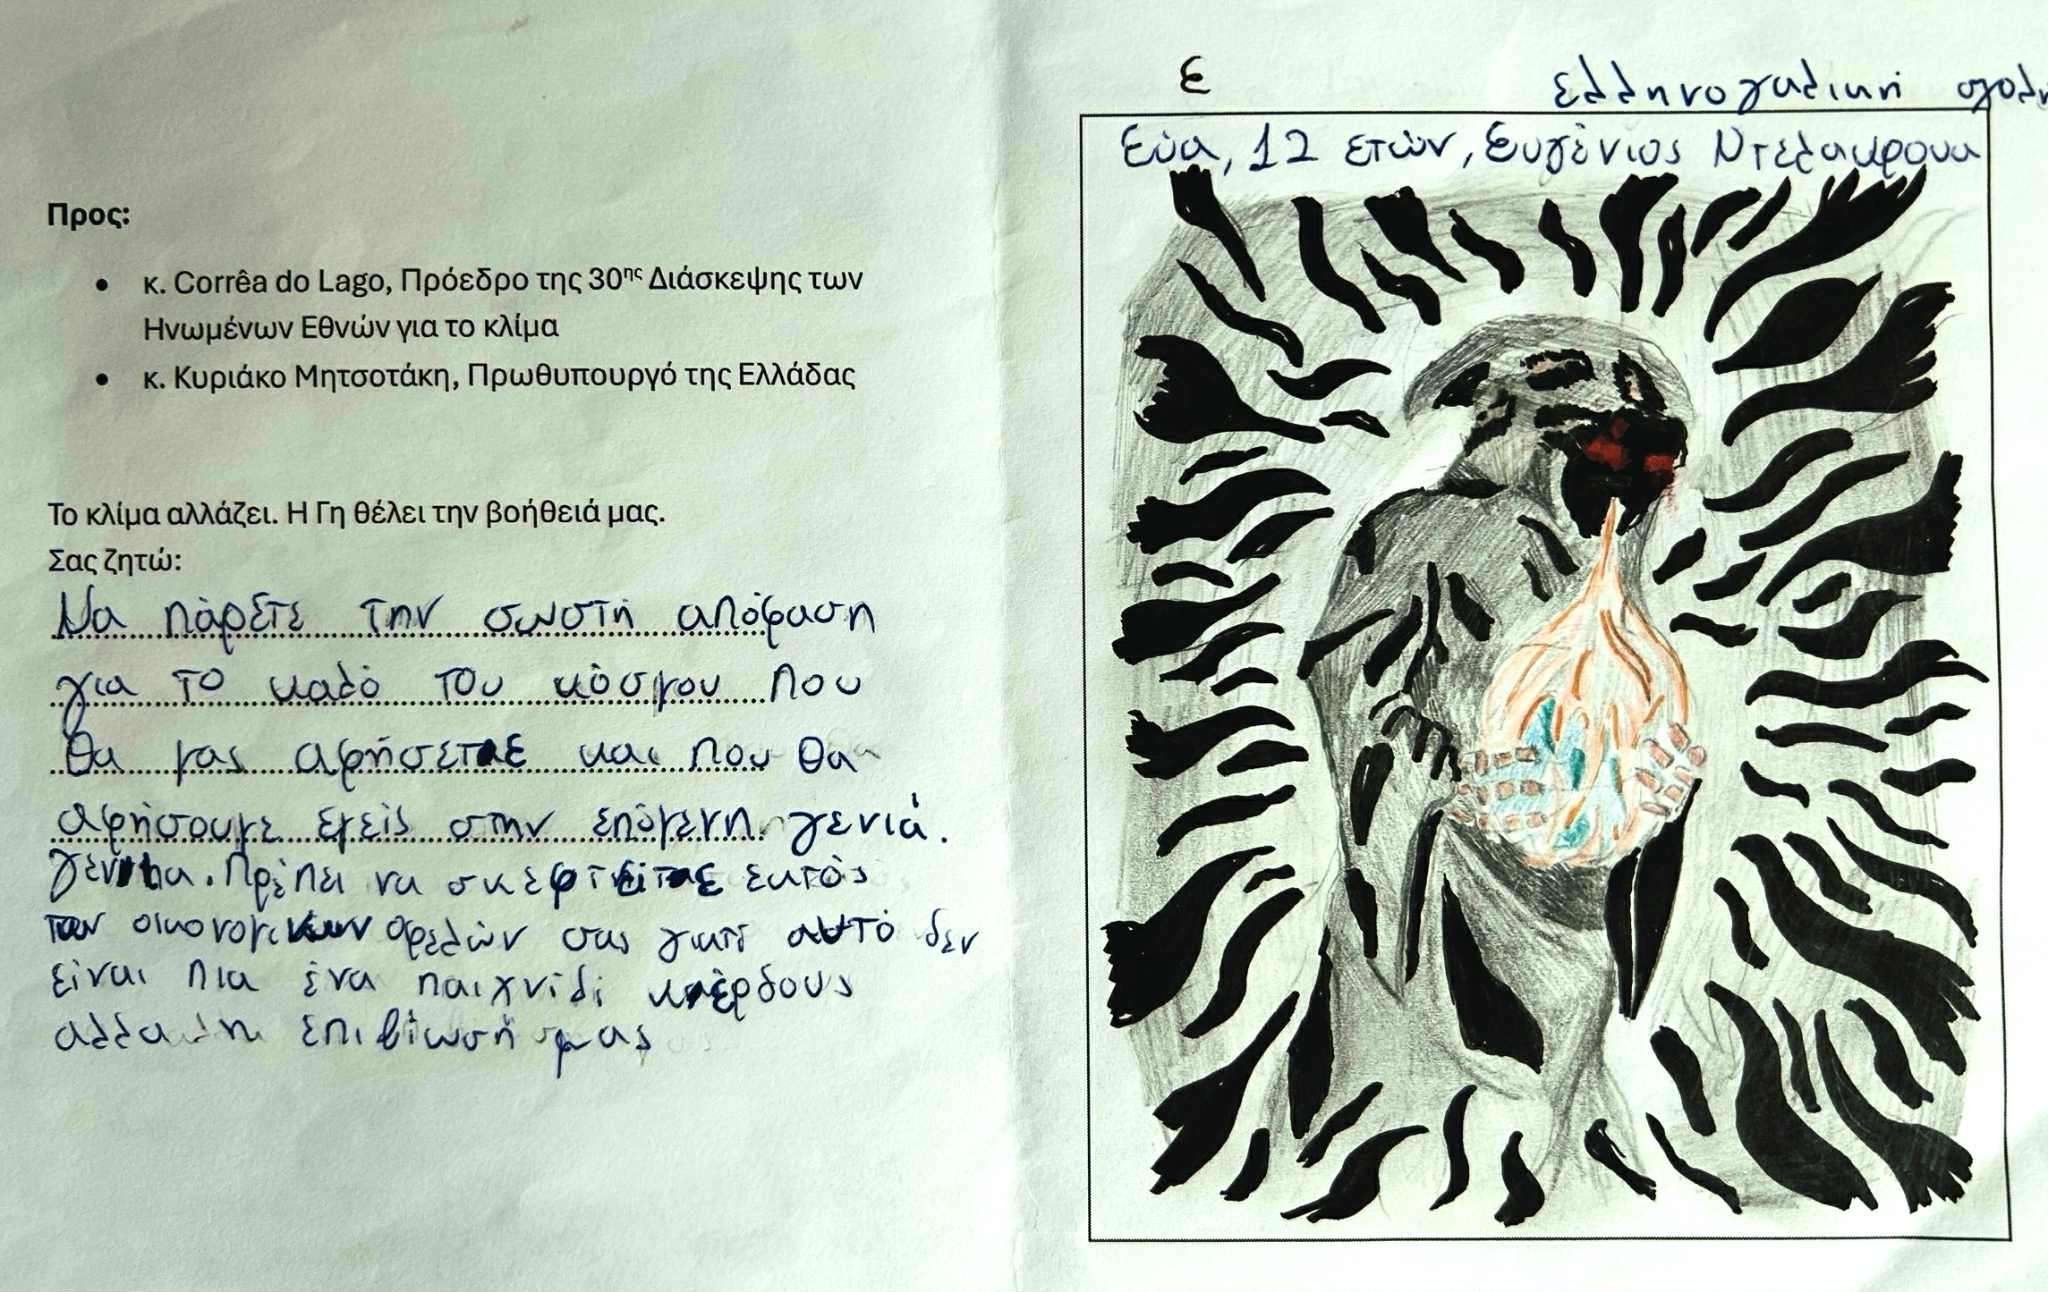 Προς:
κ. Corrêa do Lago, Πρόεδρο της 30ης Διάσκεψης των
Ηνωμένων Εθνών για το κλίμα
κ. Κυριάκο Μητσοτάκη, Πρωθυπουργό της Ελλάδας
Το κλίμα αλλάζει. Η Γη θέλει την βοήθειά μας.
Σας ζητώ:
Να πάρετε την σωστή απόφαση
για το καλό του κόσμου που
θα μας αφήσετε και που θα
αφήσουμε εμείς στην επόμενη γενιά.
Πρέπει να σκεφτείτε εκτός
των οικονομικών οφελών σας γιατί αυτό δεν
είναι πια ένα παιχνίδι κέρδους
αλλα η επιβίωσή μας
ε
ελληνογαλική σχολή
Εύα, 12 ετών, Ευγένιος Ντελακρουα